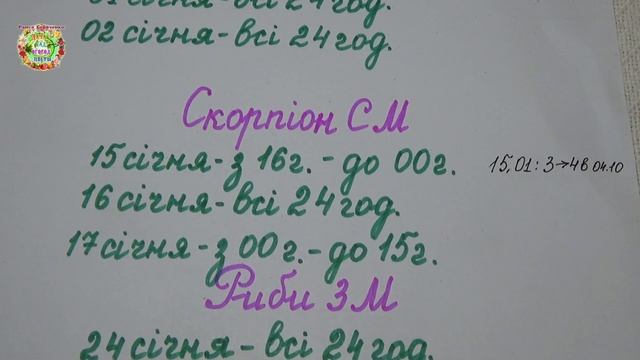 01 січня - всі 24 год.
02 січня - всі 24 год.
Скорпіон СМ
15 січня - з 16 г. - до 00 г.
15,01: 3→4 в 04.10
16 січня - всі 24 год.
17 січня - з 00 г. - до 15 г.
Риби ЗМ
24 січня - всі 24 год.